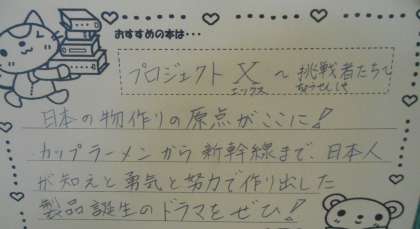 おすすめの本は…
プロジェクトX～挑戦者たち～
エックス ちょうせんしゃ
日本の物作りの原点がここに！
カップラーメンから新幹線まで、日本人
が知えと勇気と努力で作り出した
製品誕生のドラマをぜひ！